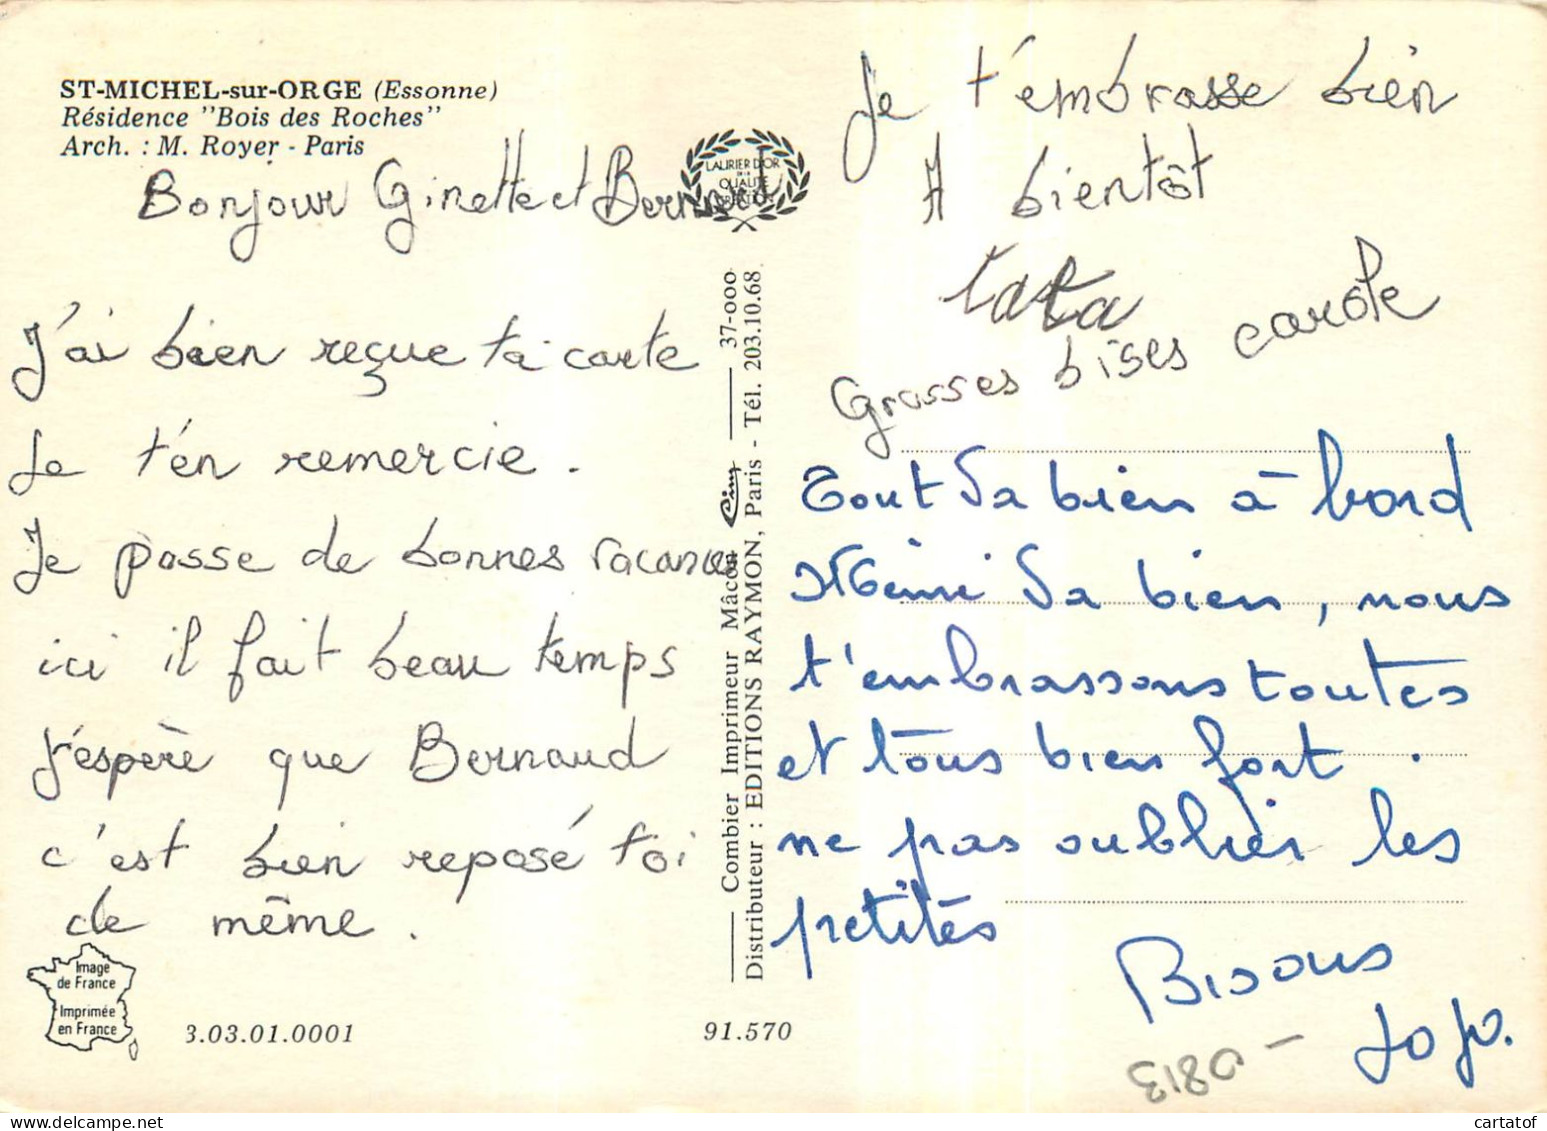 ST-MICHEL-sur-ORGE (Essonne)
Résidence "Bois des Roches"
Arch. : M. Royer - Paris
LAURIER D'OR
DE LA
QUALITÉ
CRÉATION
Bonjour Ginette et Bernaud
J'ai bien reçue ta carte
Je t'en remercie .
Je passe de bonnes vacances
ici il fait beau temps
J'espère que Bernaud
c'est bien reposé toi
de même .
Image
de France
Imprimée
en France
3.03.01.0001
91.570
Combier Imprimeur Mâcon Cim 37-000
Distributeur : EDITIONS RAYMON, Paris - Tél. 203.10.68
Je t'embrasse bien
A bientôt
Grosses bises carole
Tout va bien à bord
va bien, nous
t'embrassons toutes
et tous bien fort .
ne pas oublier les
petités
Bisous
Jojo.
0813 -
cartatof